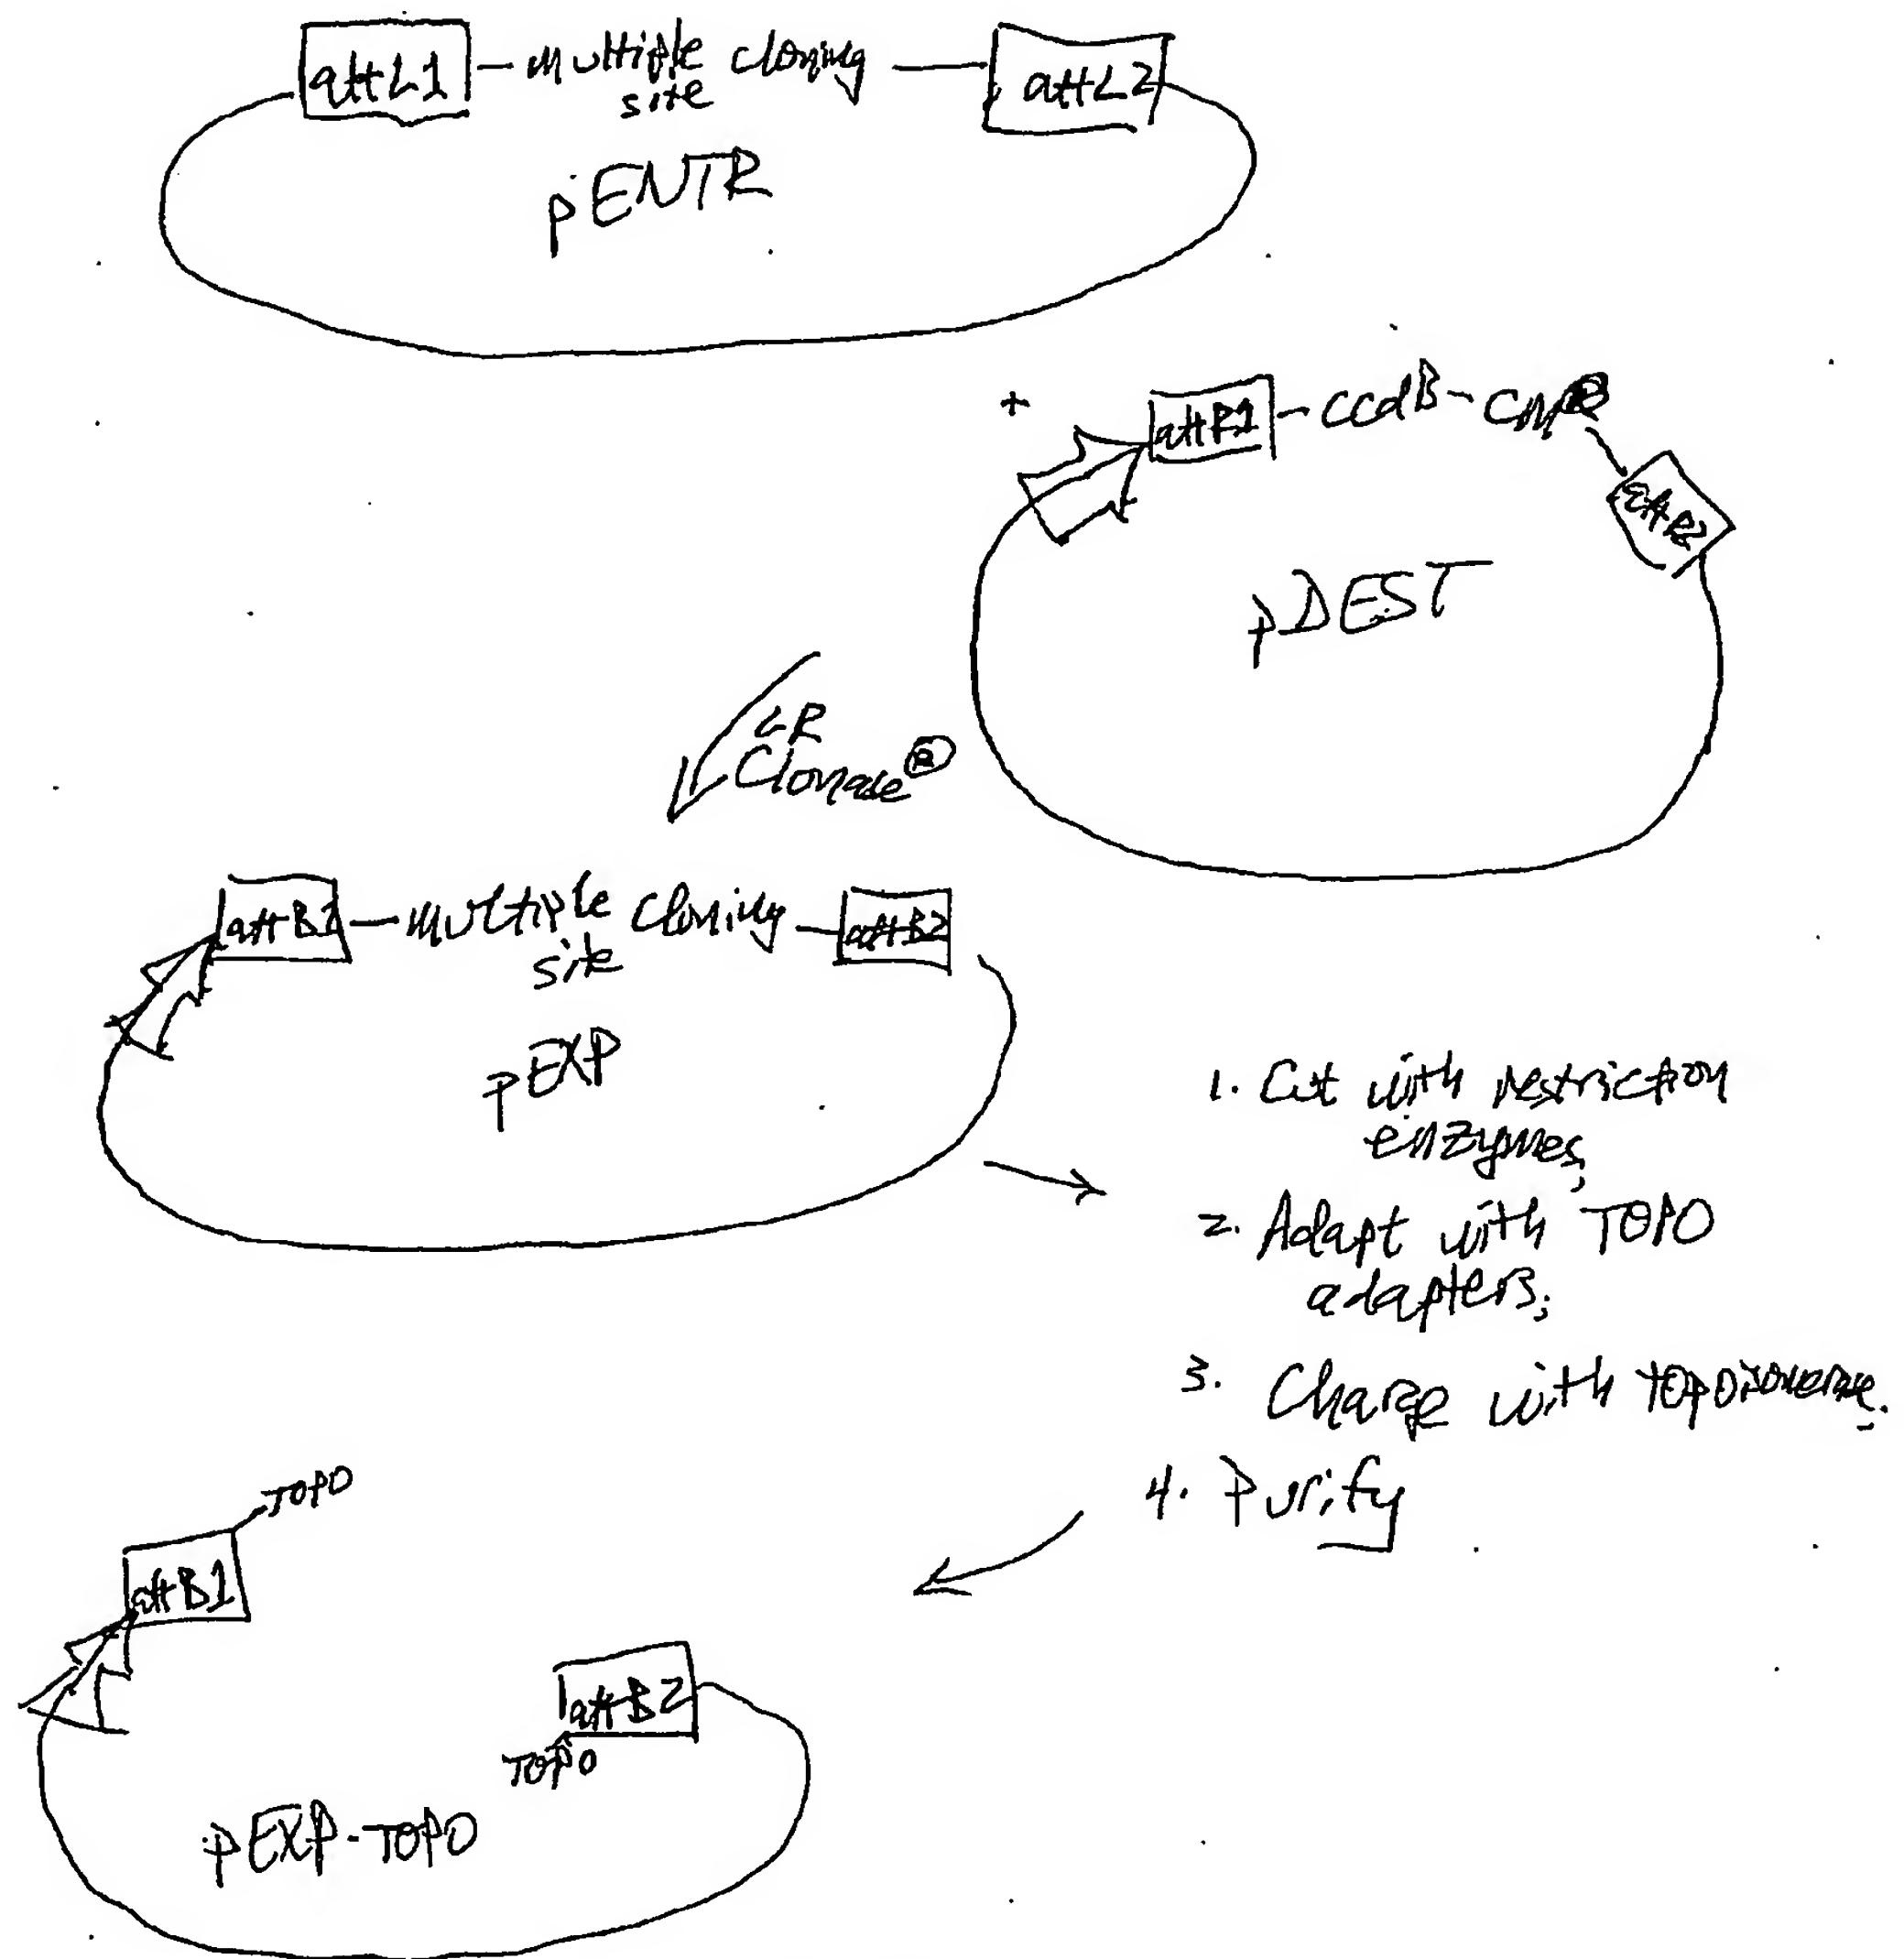 attL1 – Multiple cloning — attL2
site
pENTR
+ attR1 – ccdB – CmR
attR2
pDEST
LR
Clonase®
attB1 — Multiple cloning — attB2
site
pEXP
1. Cut with restriction
enzymes;
2. Adapt with TOPO
adapters;
3. Charge with topoisomerase.
4. Purify
TOPO
attB1
attB2
TOPO
pEXP-TOPO